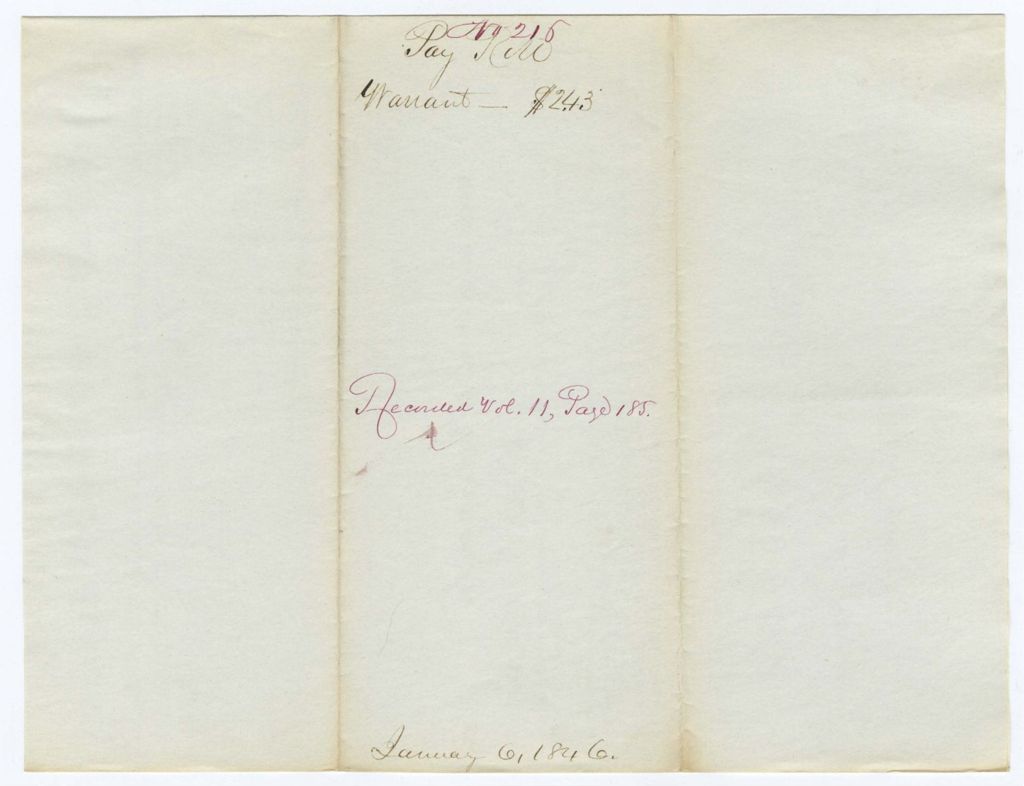 No 216
Pay Roll
Warrant — $243
Recorded Vol. 11, Page 185.
January 6, 1846.